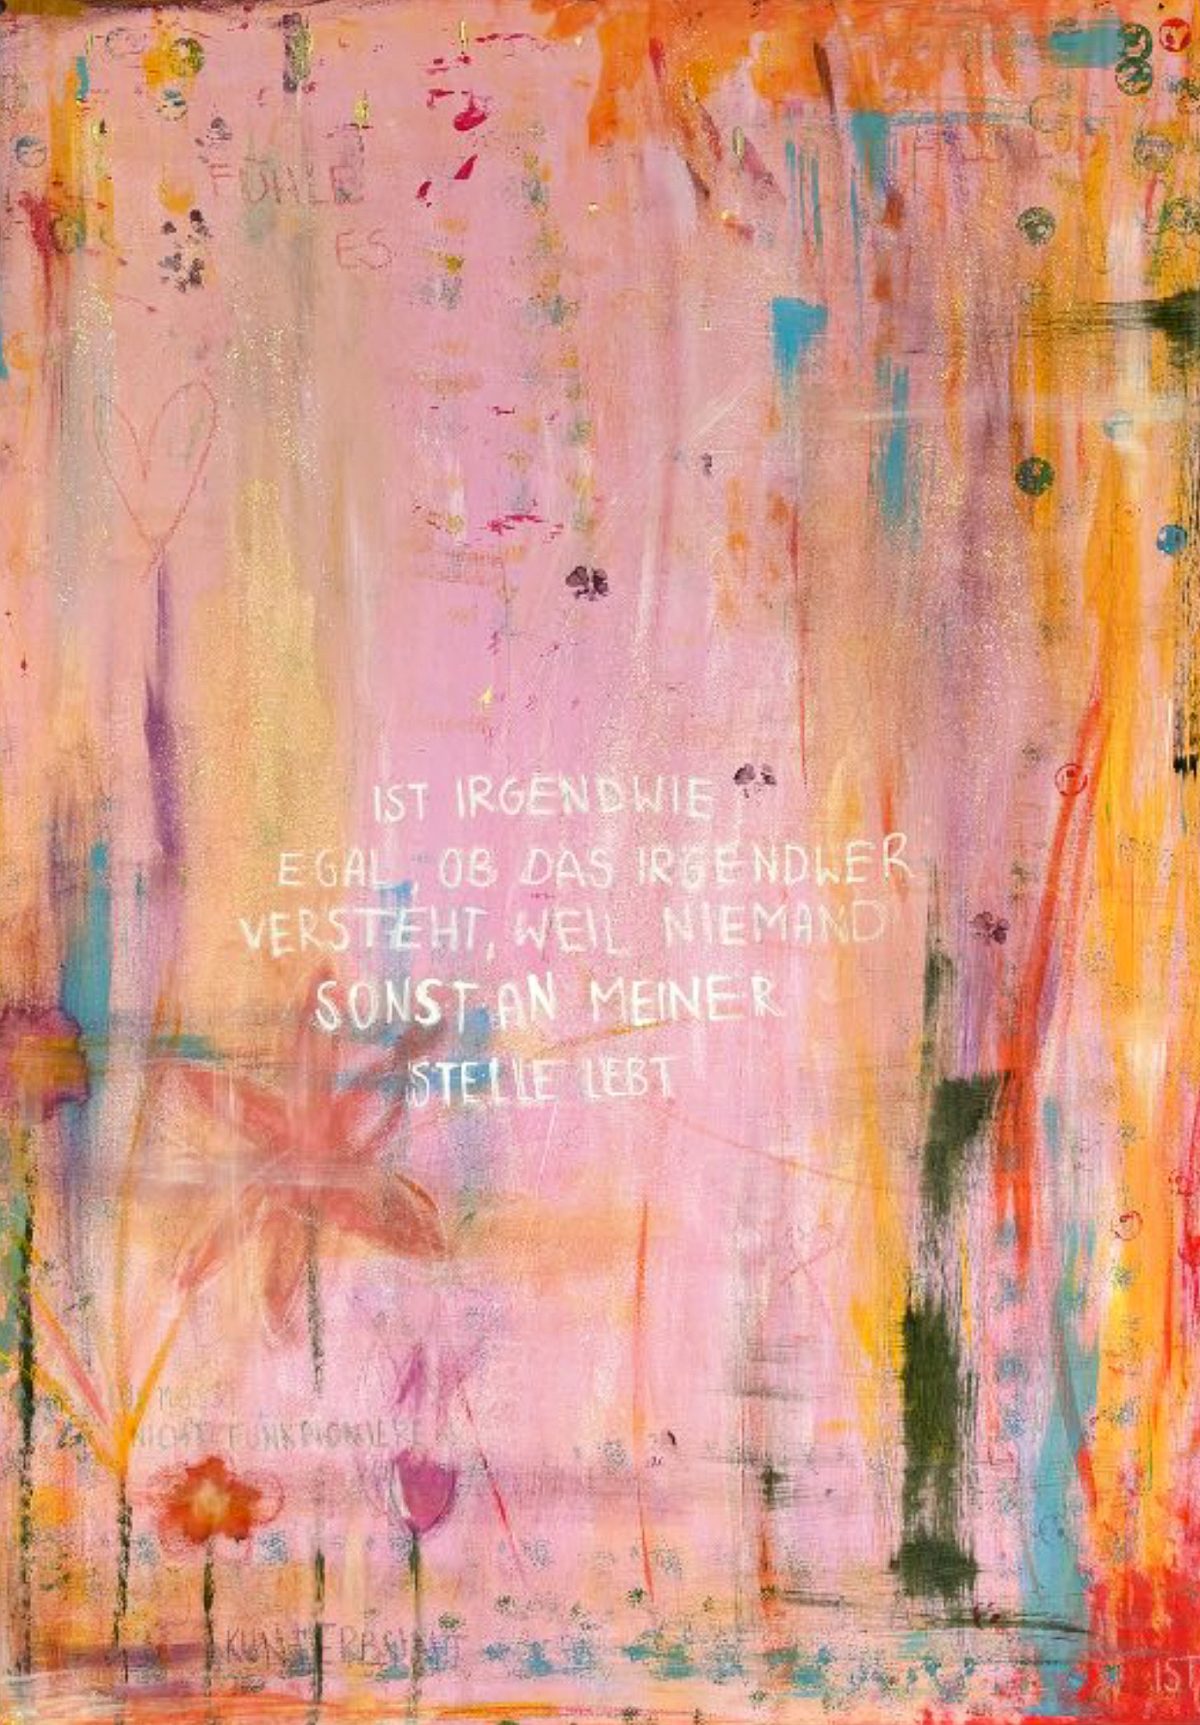 FÜHLE
ES
IST IRGENDWIE
EGAL, OB DAS IRGENDWER
VERSTEHT, WEIL NIEMAND
SONST AN MEINER
STELLE LEBT
NICHT FUNKTIONIERE
IST